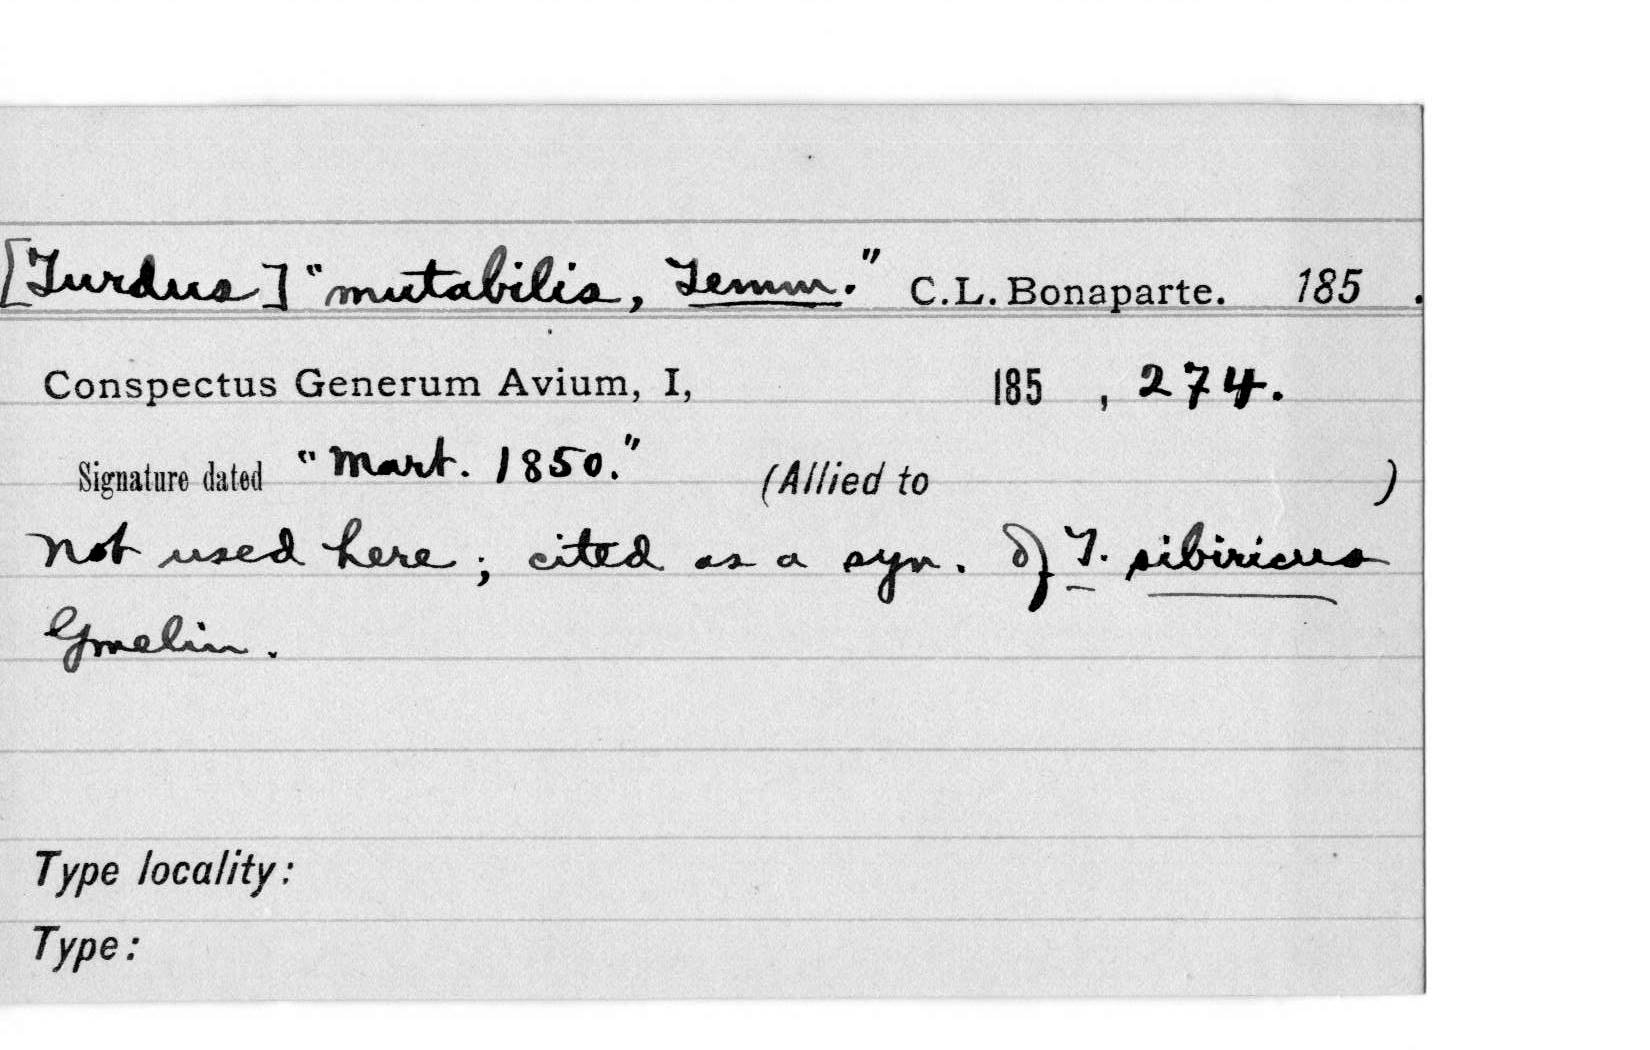 [Turdus] "mutabilis, Temm." C.L. Bonaparte. 185 .
Conspectus Generum Avium, I, 185 , 274.
Signature dated "Mart. 1850." (Allied to )
Not used here; cited as a syn. of T. sibiricus
Gmelin.
Type locality:
Type: